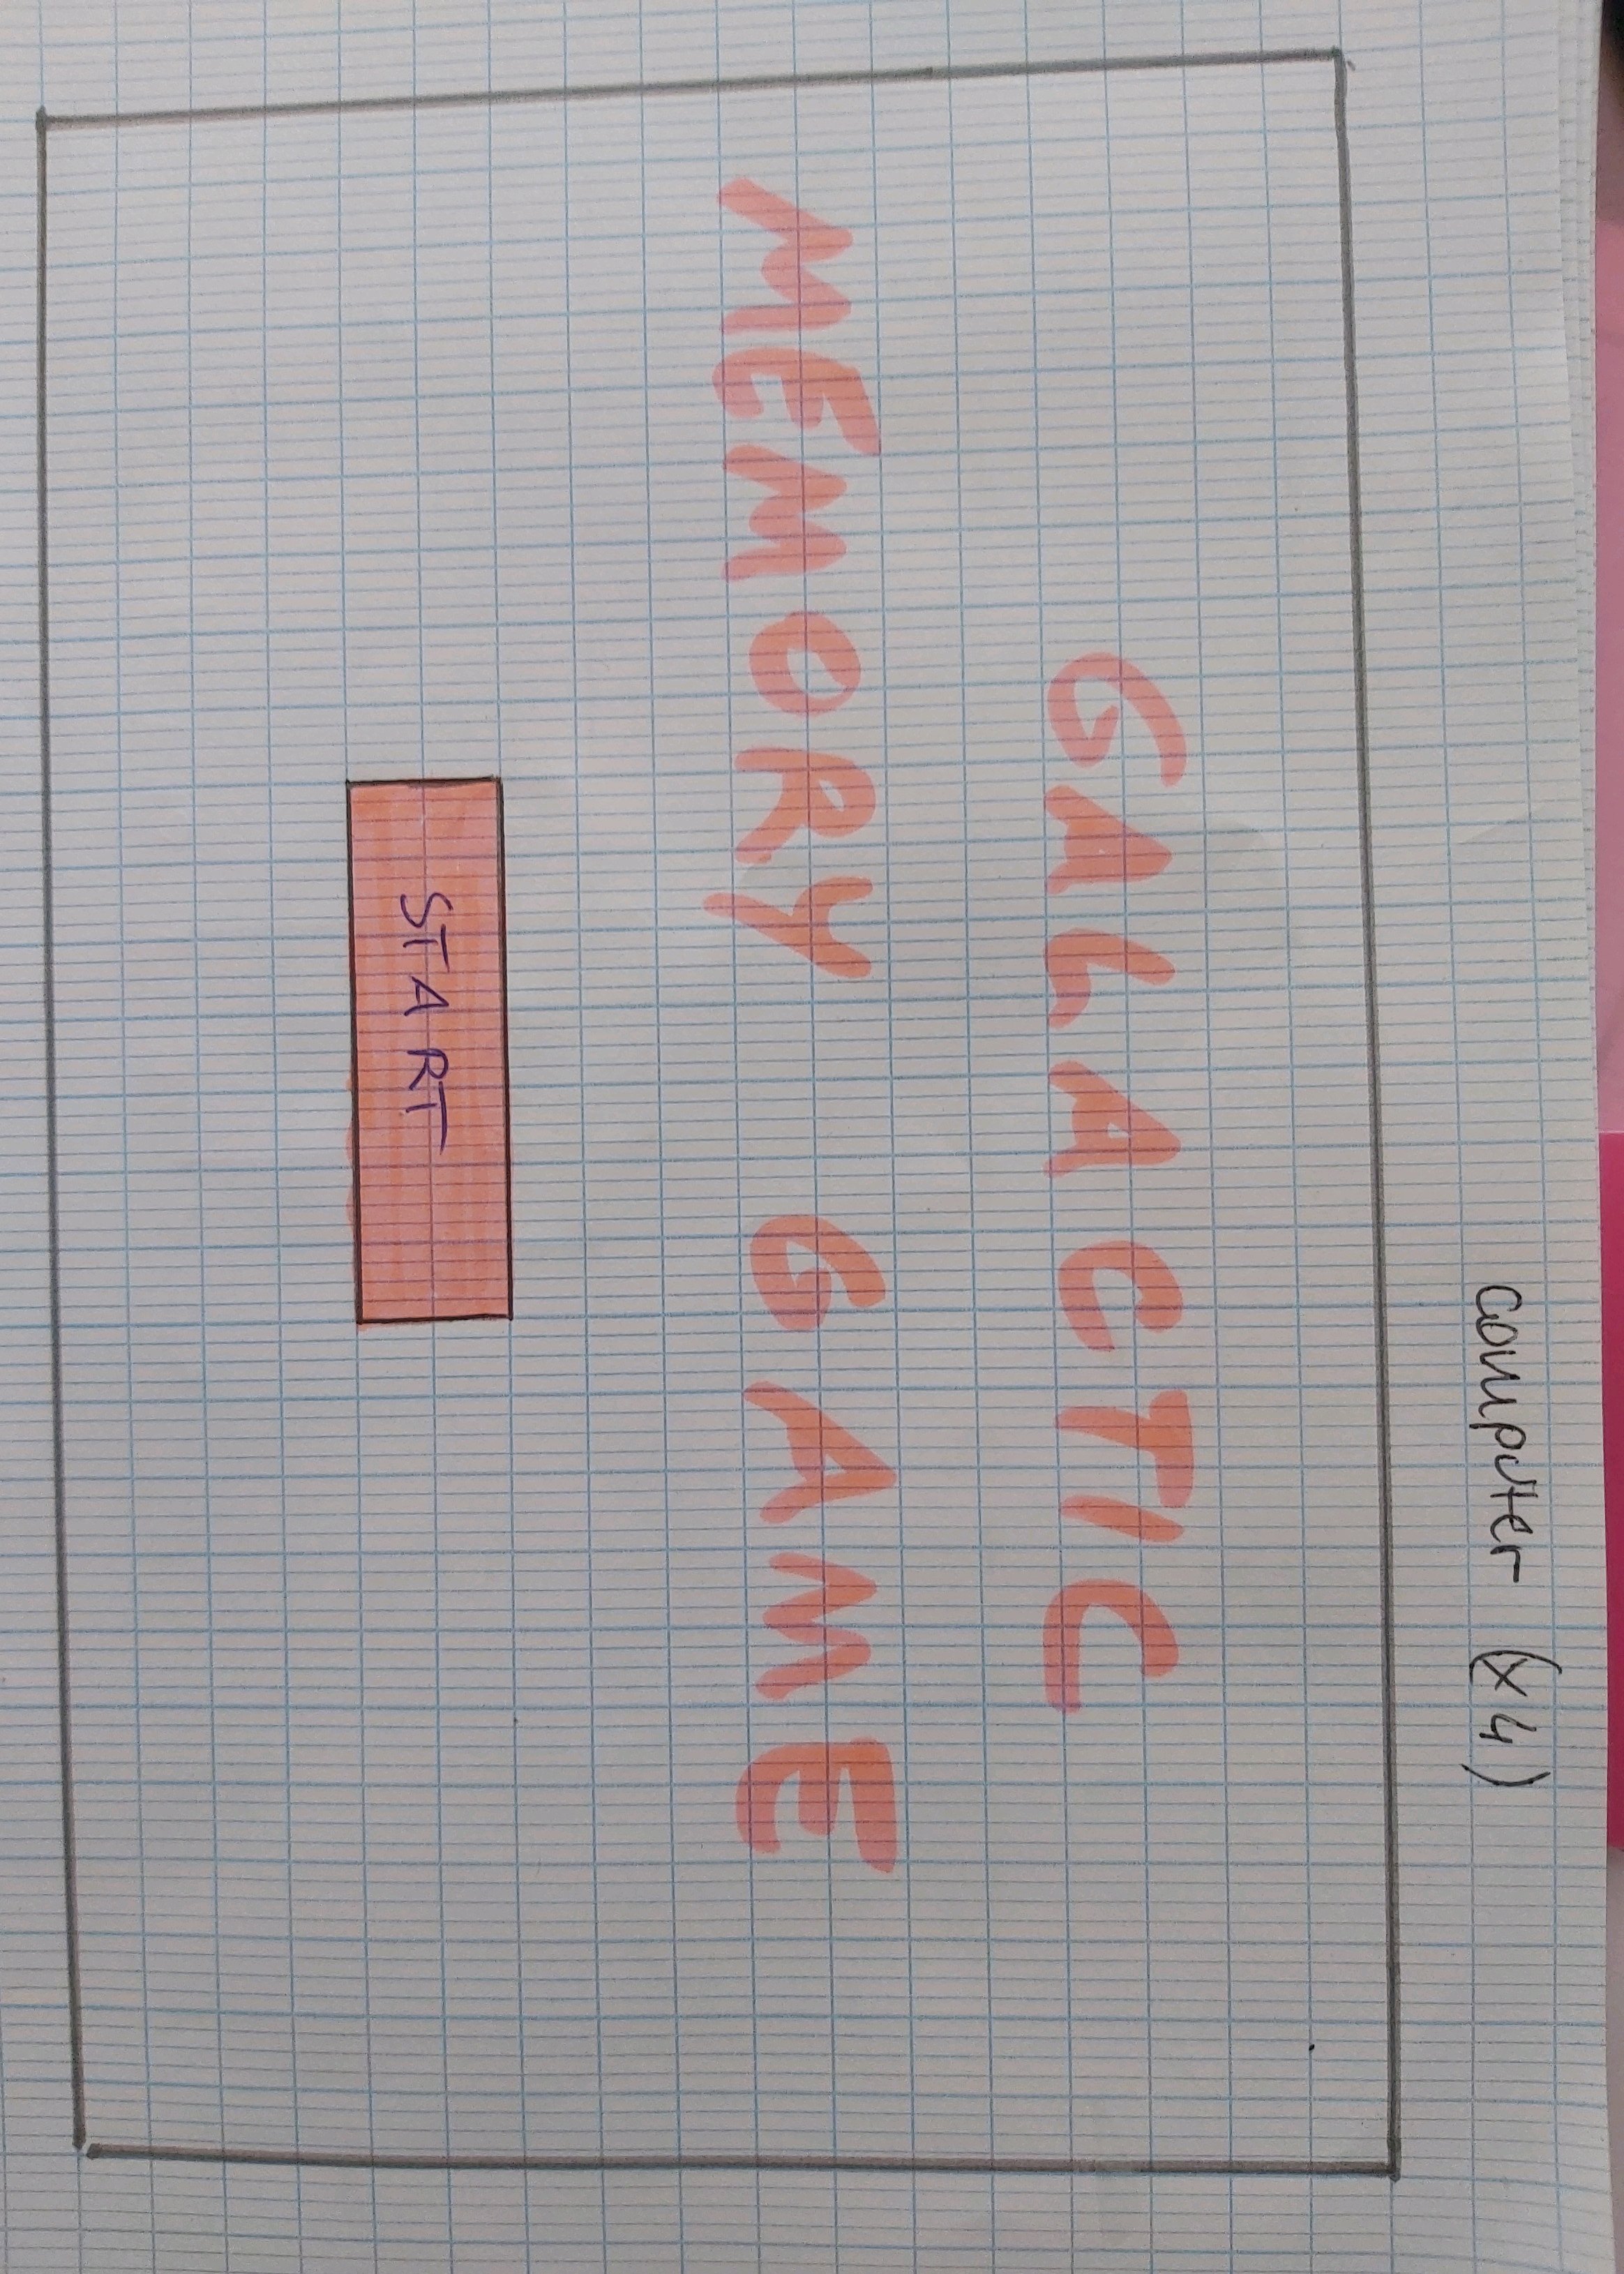 computer (x4)
GALACTIC
MEMORY GAME
START